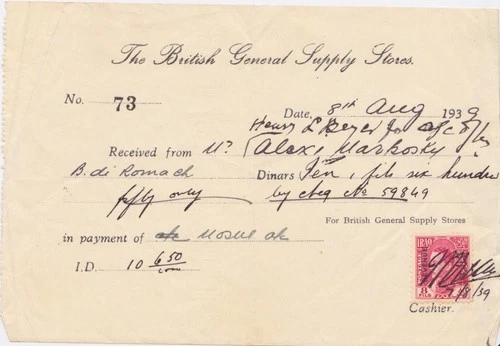 The British General Supply Stores.
No. 73
Date, 8th Aug 1939
Henry
Received from Mr Alex Markosky
B. di Romach Dinars Ten, fils six hundred
fifty only by chq No 59849
For British General Supply Stores
in payment of Mosul a/c
I.D. 10 650/1000
IRAQ
8
7/8/39
Cashier.